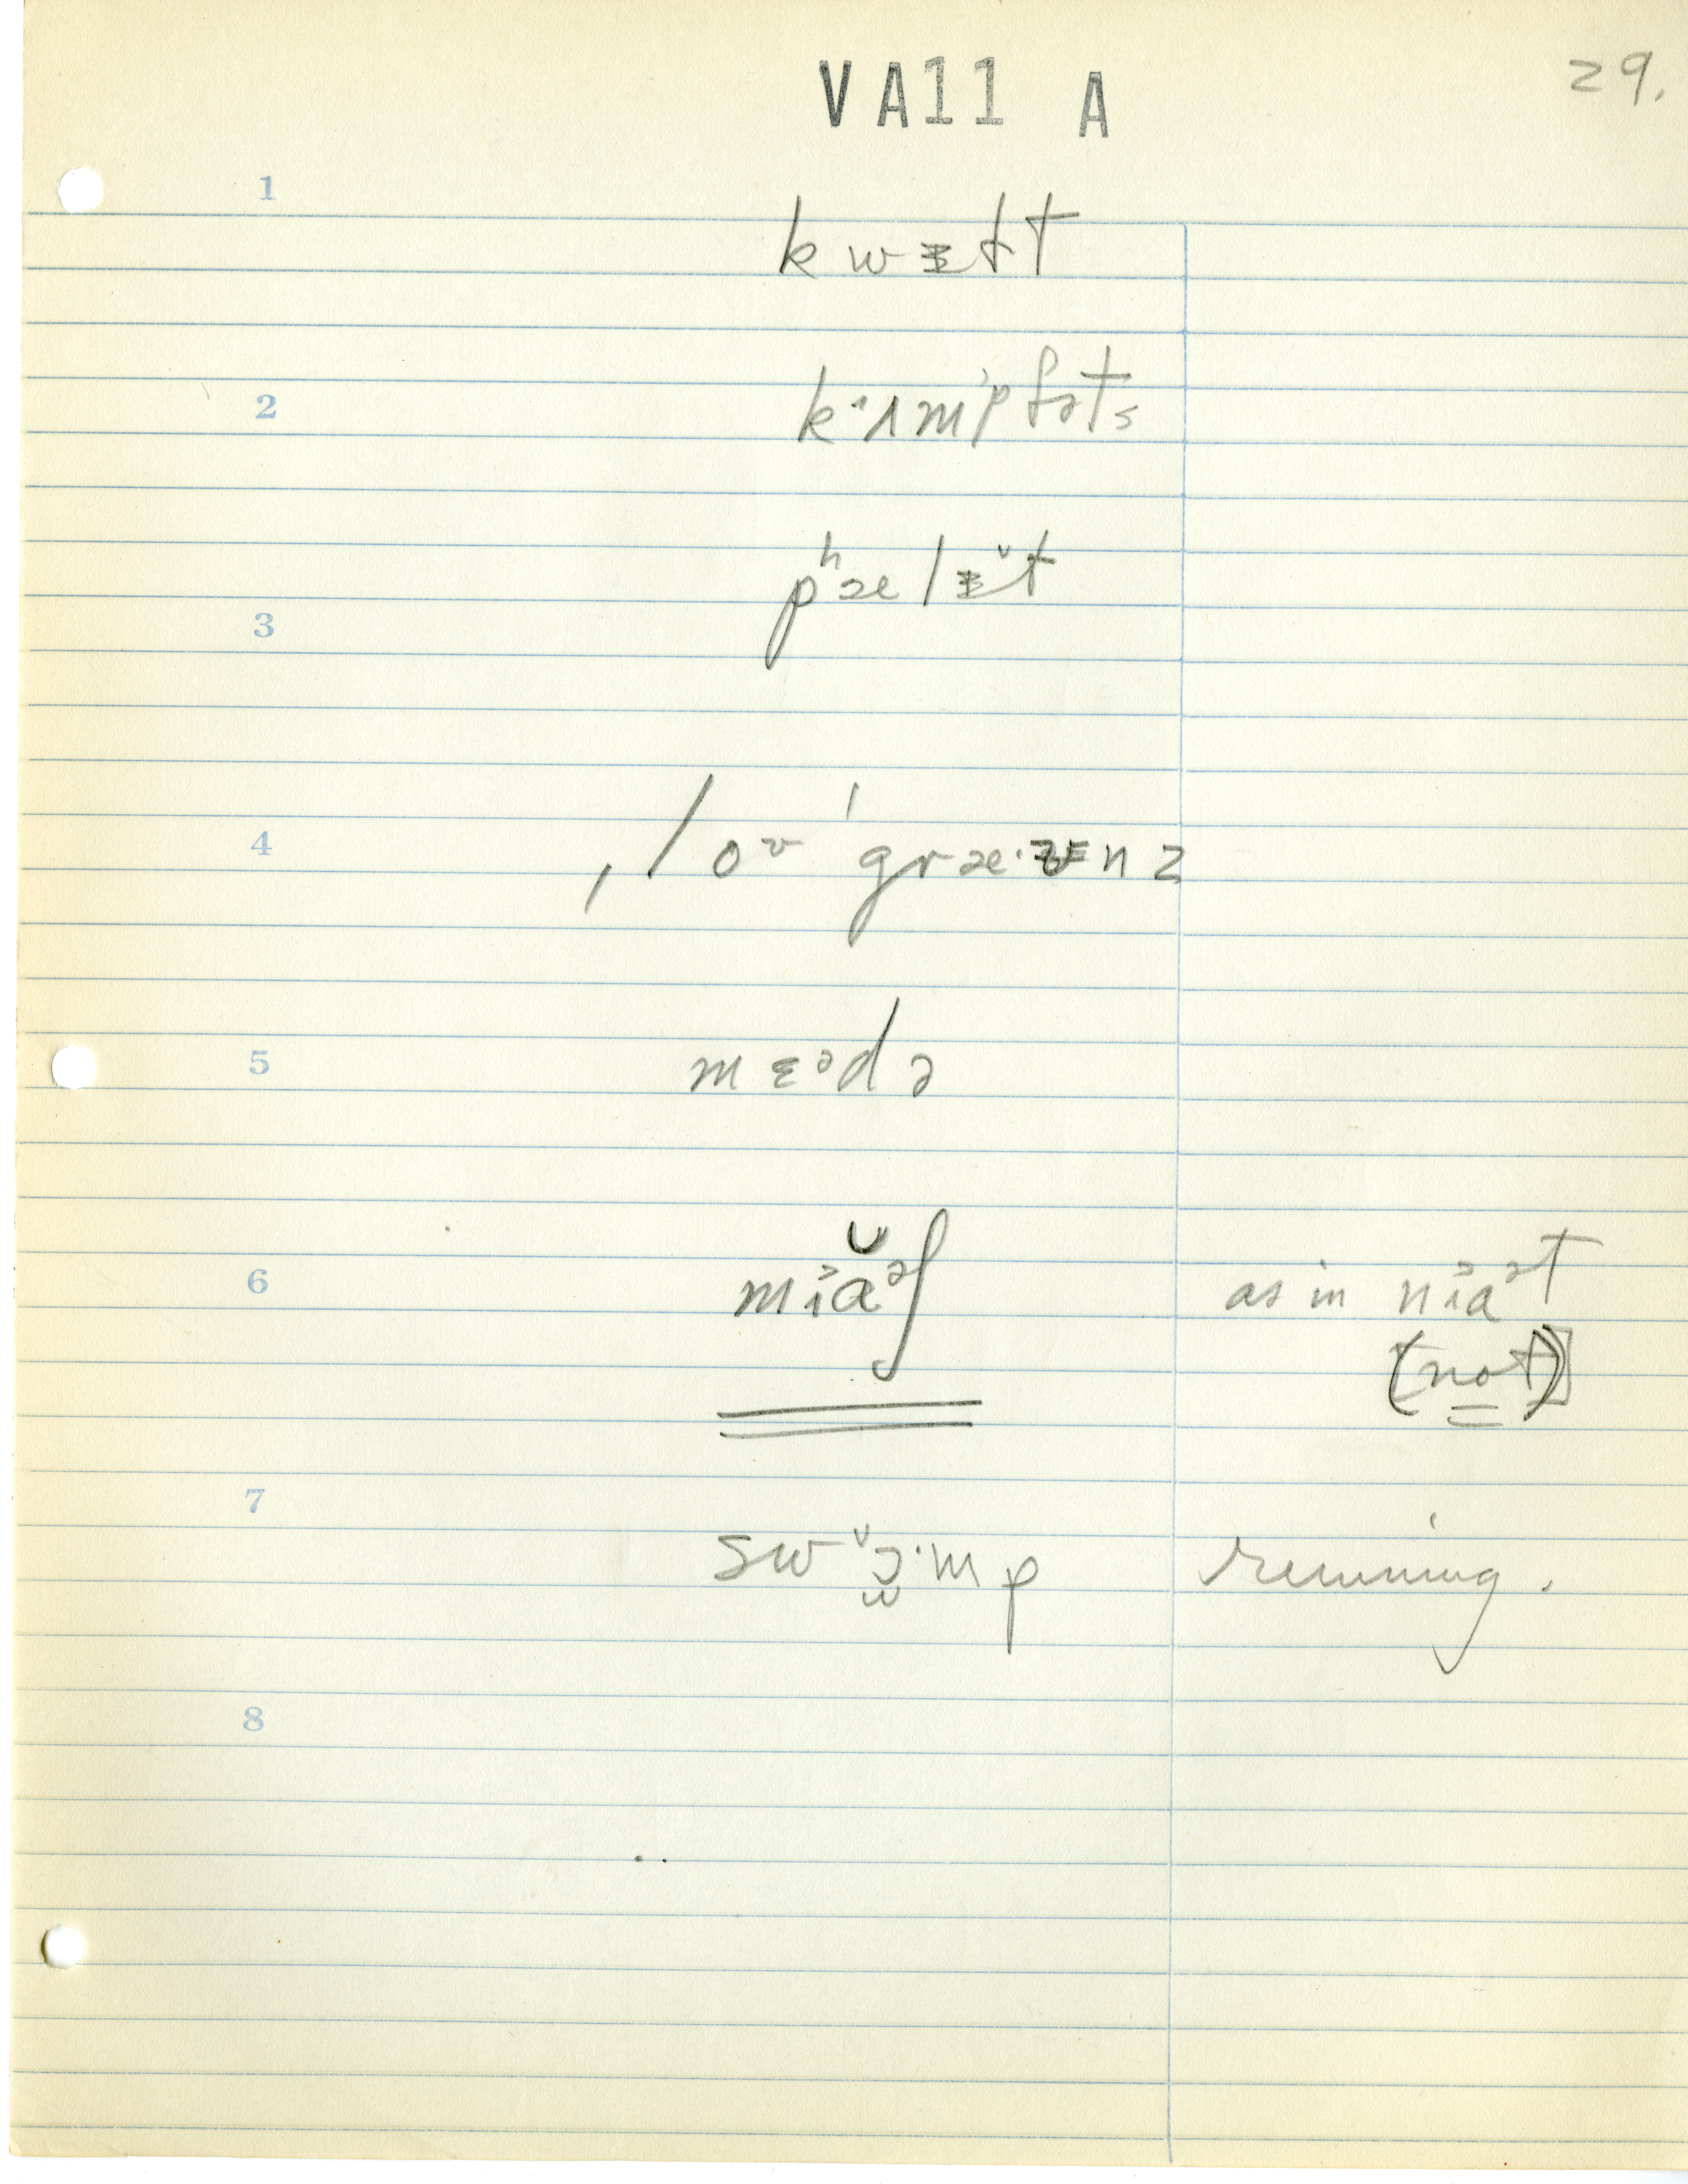 VA11 A
29.
1
kwᵻft
2
kʌmpfəts
3
pʰælᵻt
4
ˌloᶷˈgræ·ᵶᵻnz
5
mɛᵊdə
6 mɪ˃ăᵊʃ as in nɪ˃aᵊt
(not)
7
swɔ̯·mp running.
8